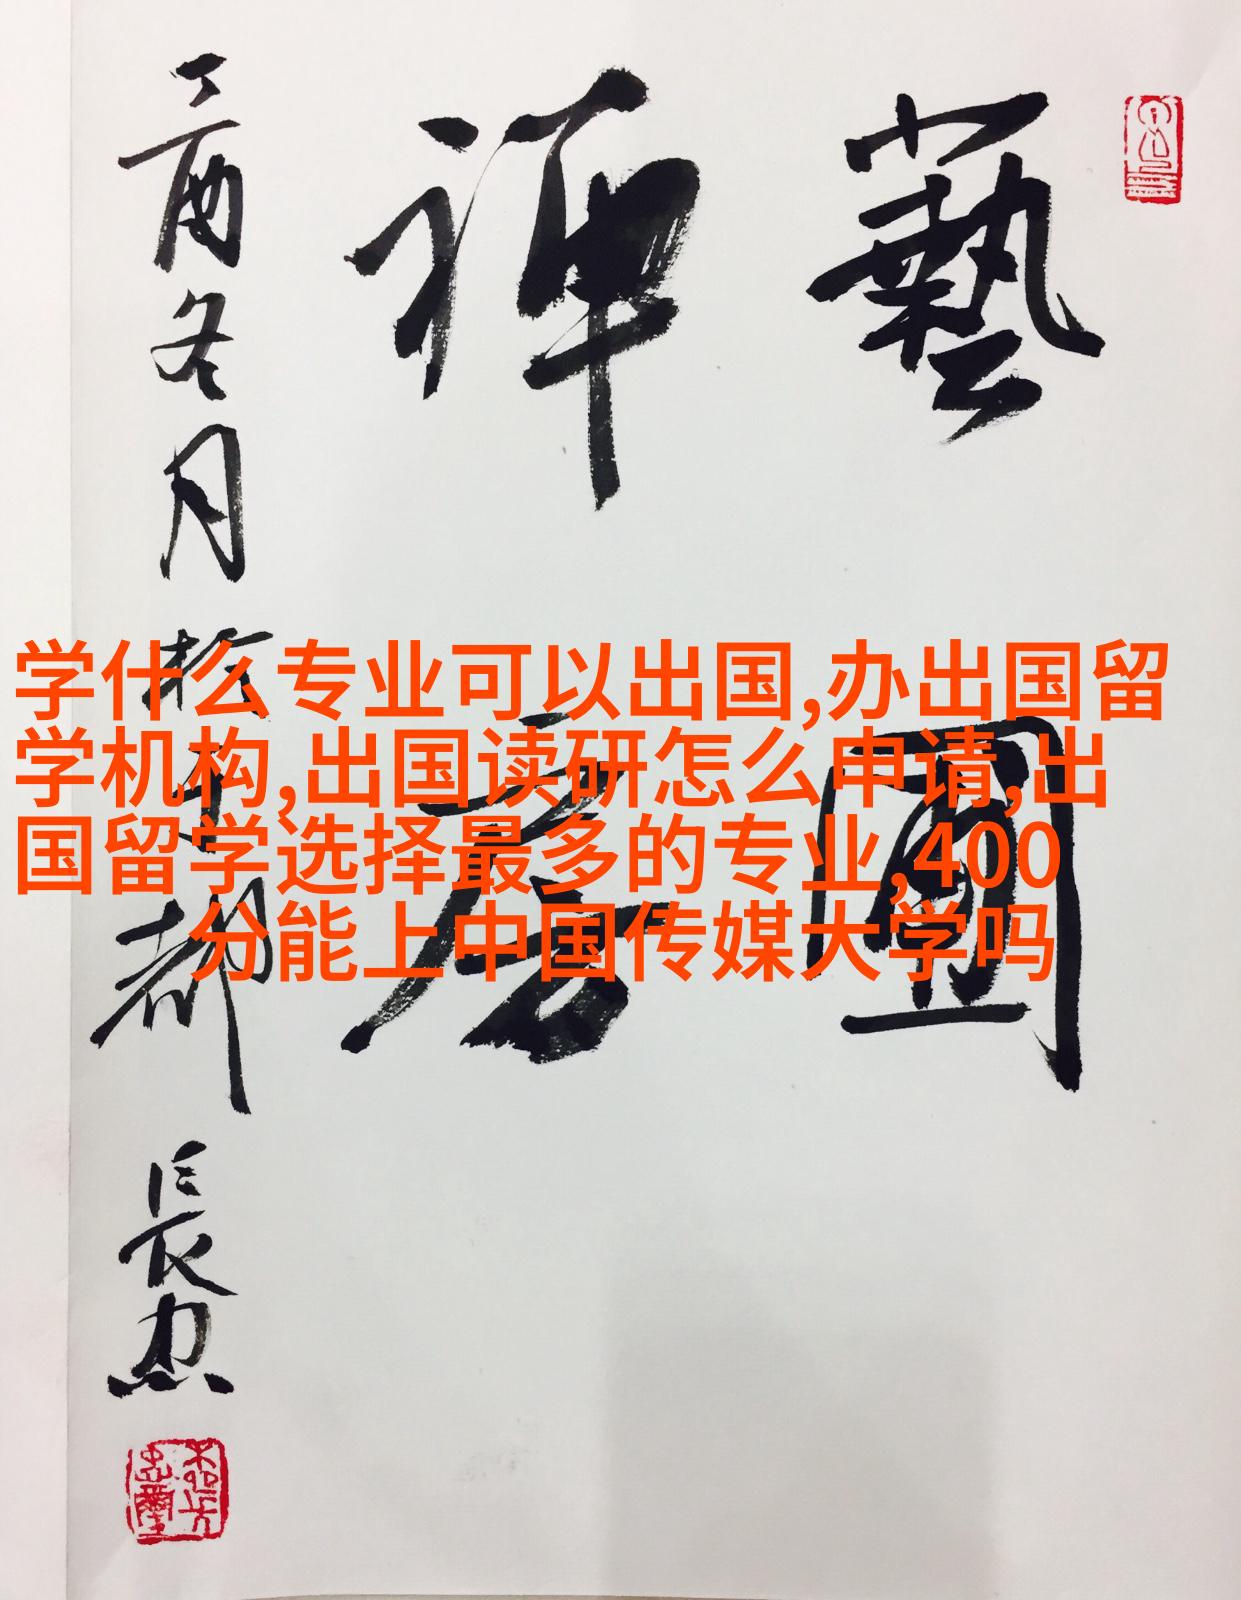 藝圃
禪房
丁酉冬月於京都
長忠
学什么专业可以出国,办出国留
学机构,出国读研怎么申请,出
国留学选择最多的专业,400
分能上中国传媒大学吗